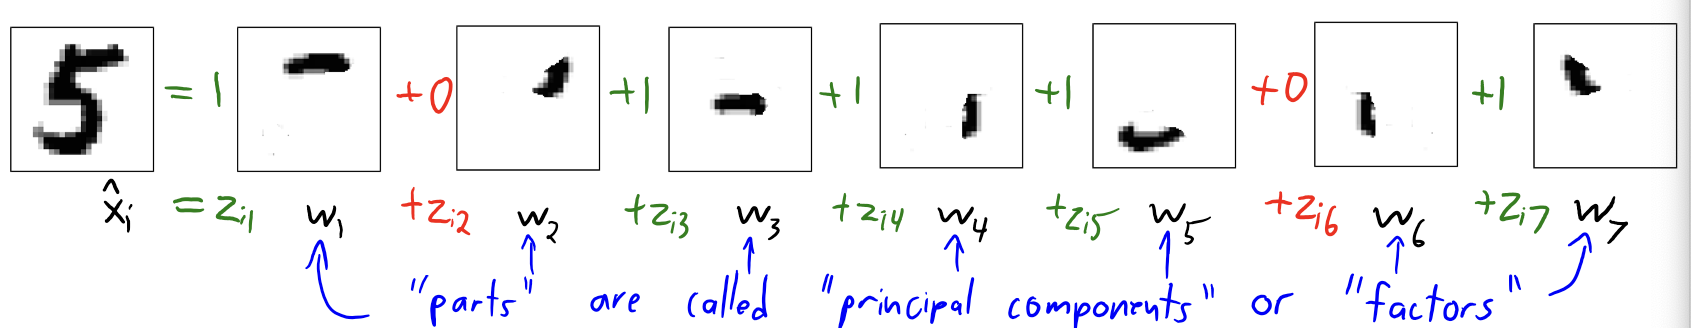 = 1 +0 +1 +1 +1 +0 +1
x̂ᵢ = zᵢ₁ w₁ +zᵢ₂ w₂ +zᵢ₃ w₃ +zᵢ₄ w₄ +zᵢ₅ w₅ +zᵢ₆ w₆ +zᵢ₇ w₇
"parts" are called "principal components" or "factors"